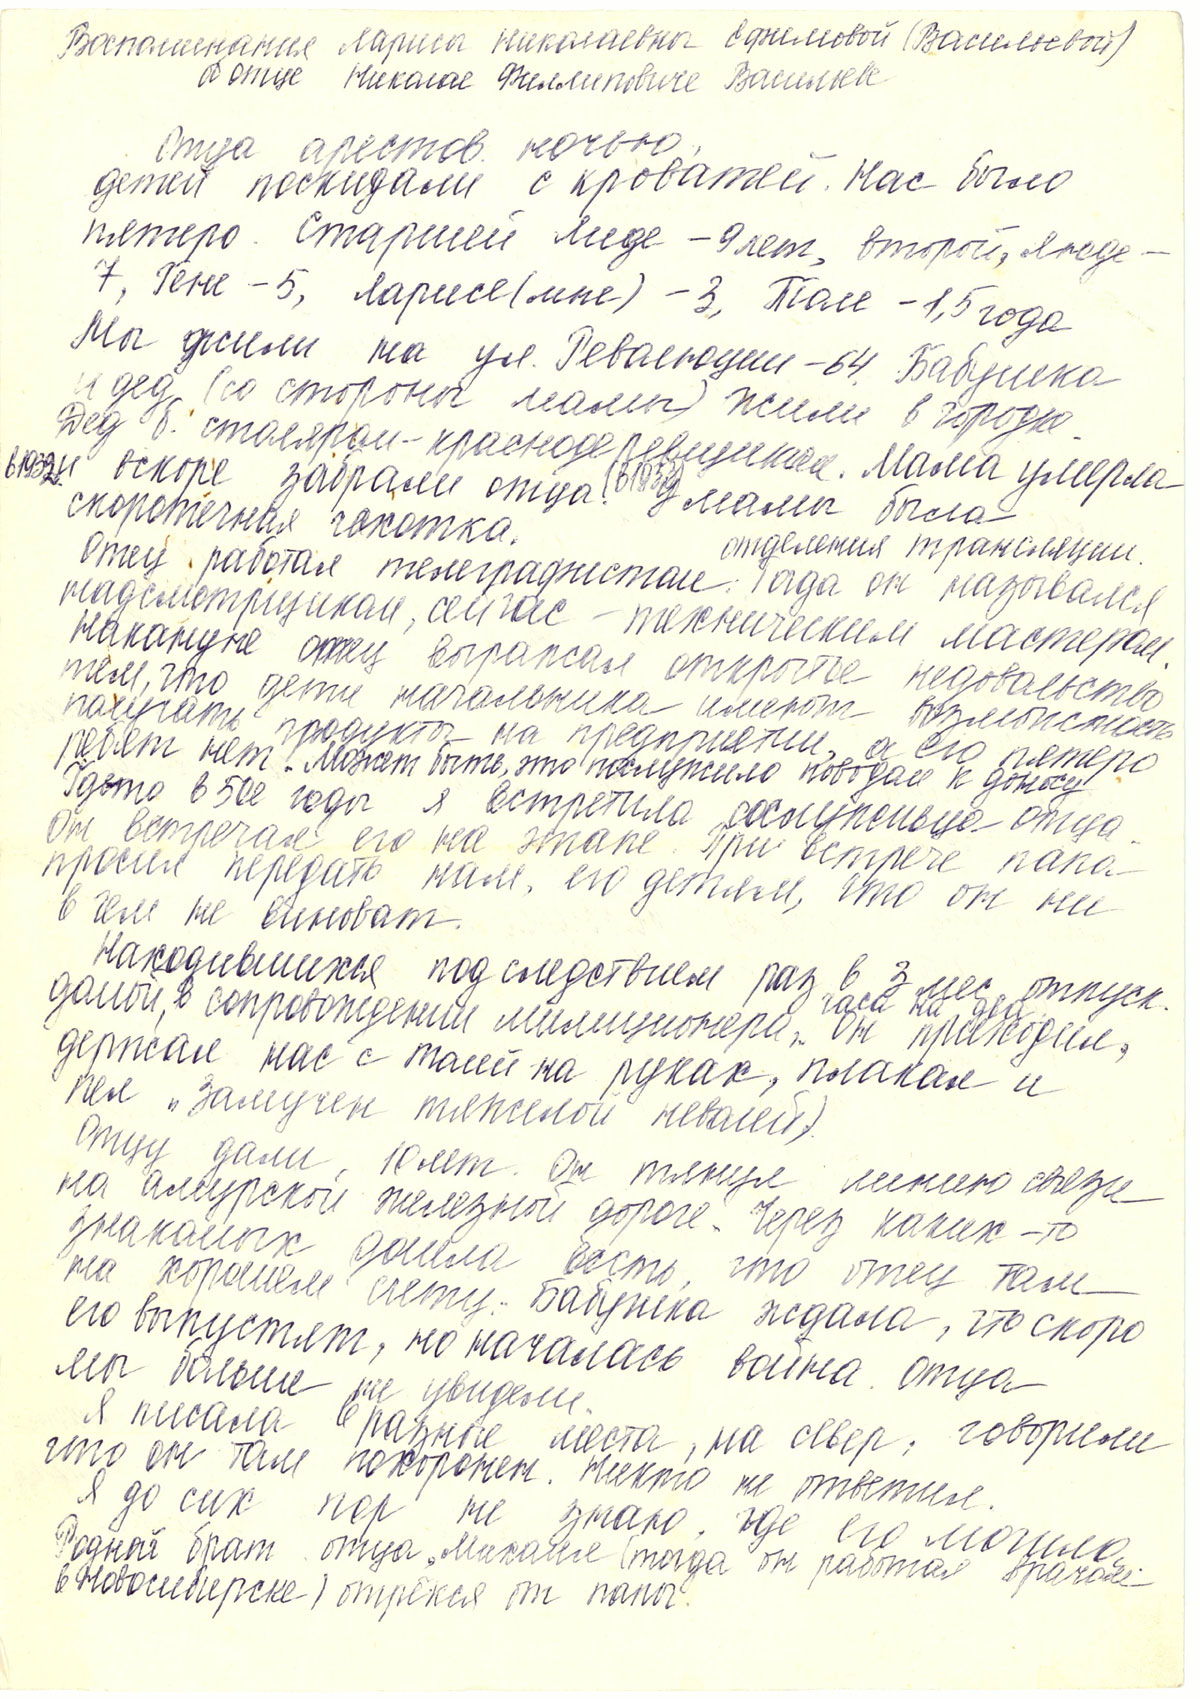 Воспоминания Ларисы Николаевны Ефимовой (Васильевой)
об отце Николае Филлиповиче Васильеве
Отца арестов. ночью,
детей поскидали с кроватей. Нас было
пятеро. Старшей Лиде – 9 лет, второй, Люде –
7, Гене – 5, Ларисе (мне) – 3, Толе – 1,5 года
Мы жили на ул. Революции – 64. Бабушка
и дед (со стороны мамы) жили в городке.
Дед б. столяром – краснодеревщиком. Мама умерла
в 1932 и вскоре забрали отца. (в 1932) У мамы была
скоротечная чахотка.
отделения трансляции.
Отец работал телеграфистом. Тогда он назывался
надсмотрщиком, сейчас – техническим мастером.
Накануне отец выражал открытое недовольство
тем, что дети начальника имеют возможность
получать продукты на предприятии, а его пятеро
ребят нет. Может быть, это послужило поводом к доносу
Где-то в 50е годы я встретила сослуживца отца.
Он встречал его на этапе. При встрече папа
просил передать нам, его детям, что он ни
в чем не виноват.
Находившихся под следствием раз в 3 мес. отпуск.
часа на два
домой, в сопровождении милиционера. Он приходил,
держал нас с Толей на руках, плакал и
пел „Замучен тяжелой неволей).
Отцу дали 10 лет. Он тянул линию связи
на амурской железной дороге. Через каких-то
знакомых дошла весть, что отец там
на хорошем счету. Бабушка ждала, что скоро
его выпустят, но началась война. Отца
мы больше не увидели.
Я писала в разные места, на север, говорили
что он там похоронен. Никто не ответил.
Я до сих пор не знаю, где его могила.
Родной брат отца, Михаил (тогда он работал врачом
в Новосибирске) отрёкся от папы.